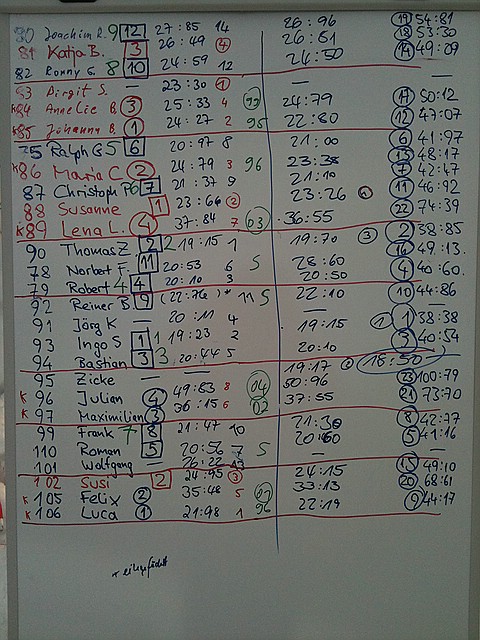 80 Joachim R. 9 12 27:85 14 26:96 19 54:81
81 Katja B. 3 26:49 4 26:81 18 53:30
82 Ronny G. 8 10 24:59 12 24:50 14 49:09
83 Birgit S. — 23:30 1 — —
K84 Annelie B. 3 25:33 4 99 24:79 17 50:12
K85 Johanna B. 1 24:27 2 95 22:80 12 47:07
75 Ralph G 5 6 20:97 8 21:00 6 41:97
K86 Maria C 2 24:79 3 96 23:38 13 48:17
87 Christoph P 6 7 21:37 9 21:10 7 42:47
88 Susanne 1 23:66 2 23:26 11 46:92
K89 Lena L. 4 37:84 7 03 36:55 22 74:39
90 Thomas Z. 2 2 19:15 1 19:70 3 2 38:85
78 Norbert F. 11 20:53 6 5 28:60 16 49:13
79 Robert 4 4 20:10 3 20:50 4 40:60
92 Reiner B. 9 (22:76)* 11 5 22:10 10 44:86
91 Jörg K — 20:11 4 — —
93 Ingo S 1 1 19:23 2 19:15 1 1 38:38
94 Bastian 3 3 20:44 5 20:10 3 40:54
95 Zicke — — 19:17 2 18:50
K 96 Julian 4 49:83 8 04 50:96 23 100:79
K 97 Maximilian 3 36:15 6 02 37:55 21 73:70
99 Frank 7 8 21:47 10 21:30 8 42:77
110 Roman 5 20:56 7 5 20:60 5 41:16
101 Wolfgang — 26:22 13 — —
102 Susi 2 24:95 3 24:15 15 49:10
K 105 Felix 2 35:48 5 01 33:13 20 68:61
K 106 Luca 1 21:98 1 96 22:19 9 44:17
* eingefädelt